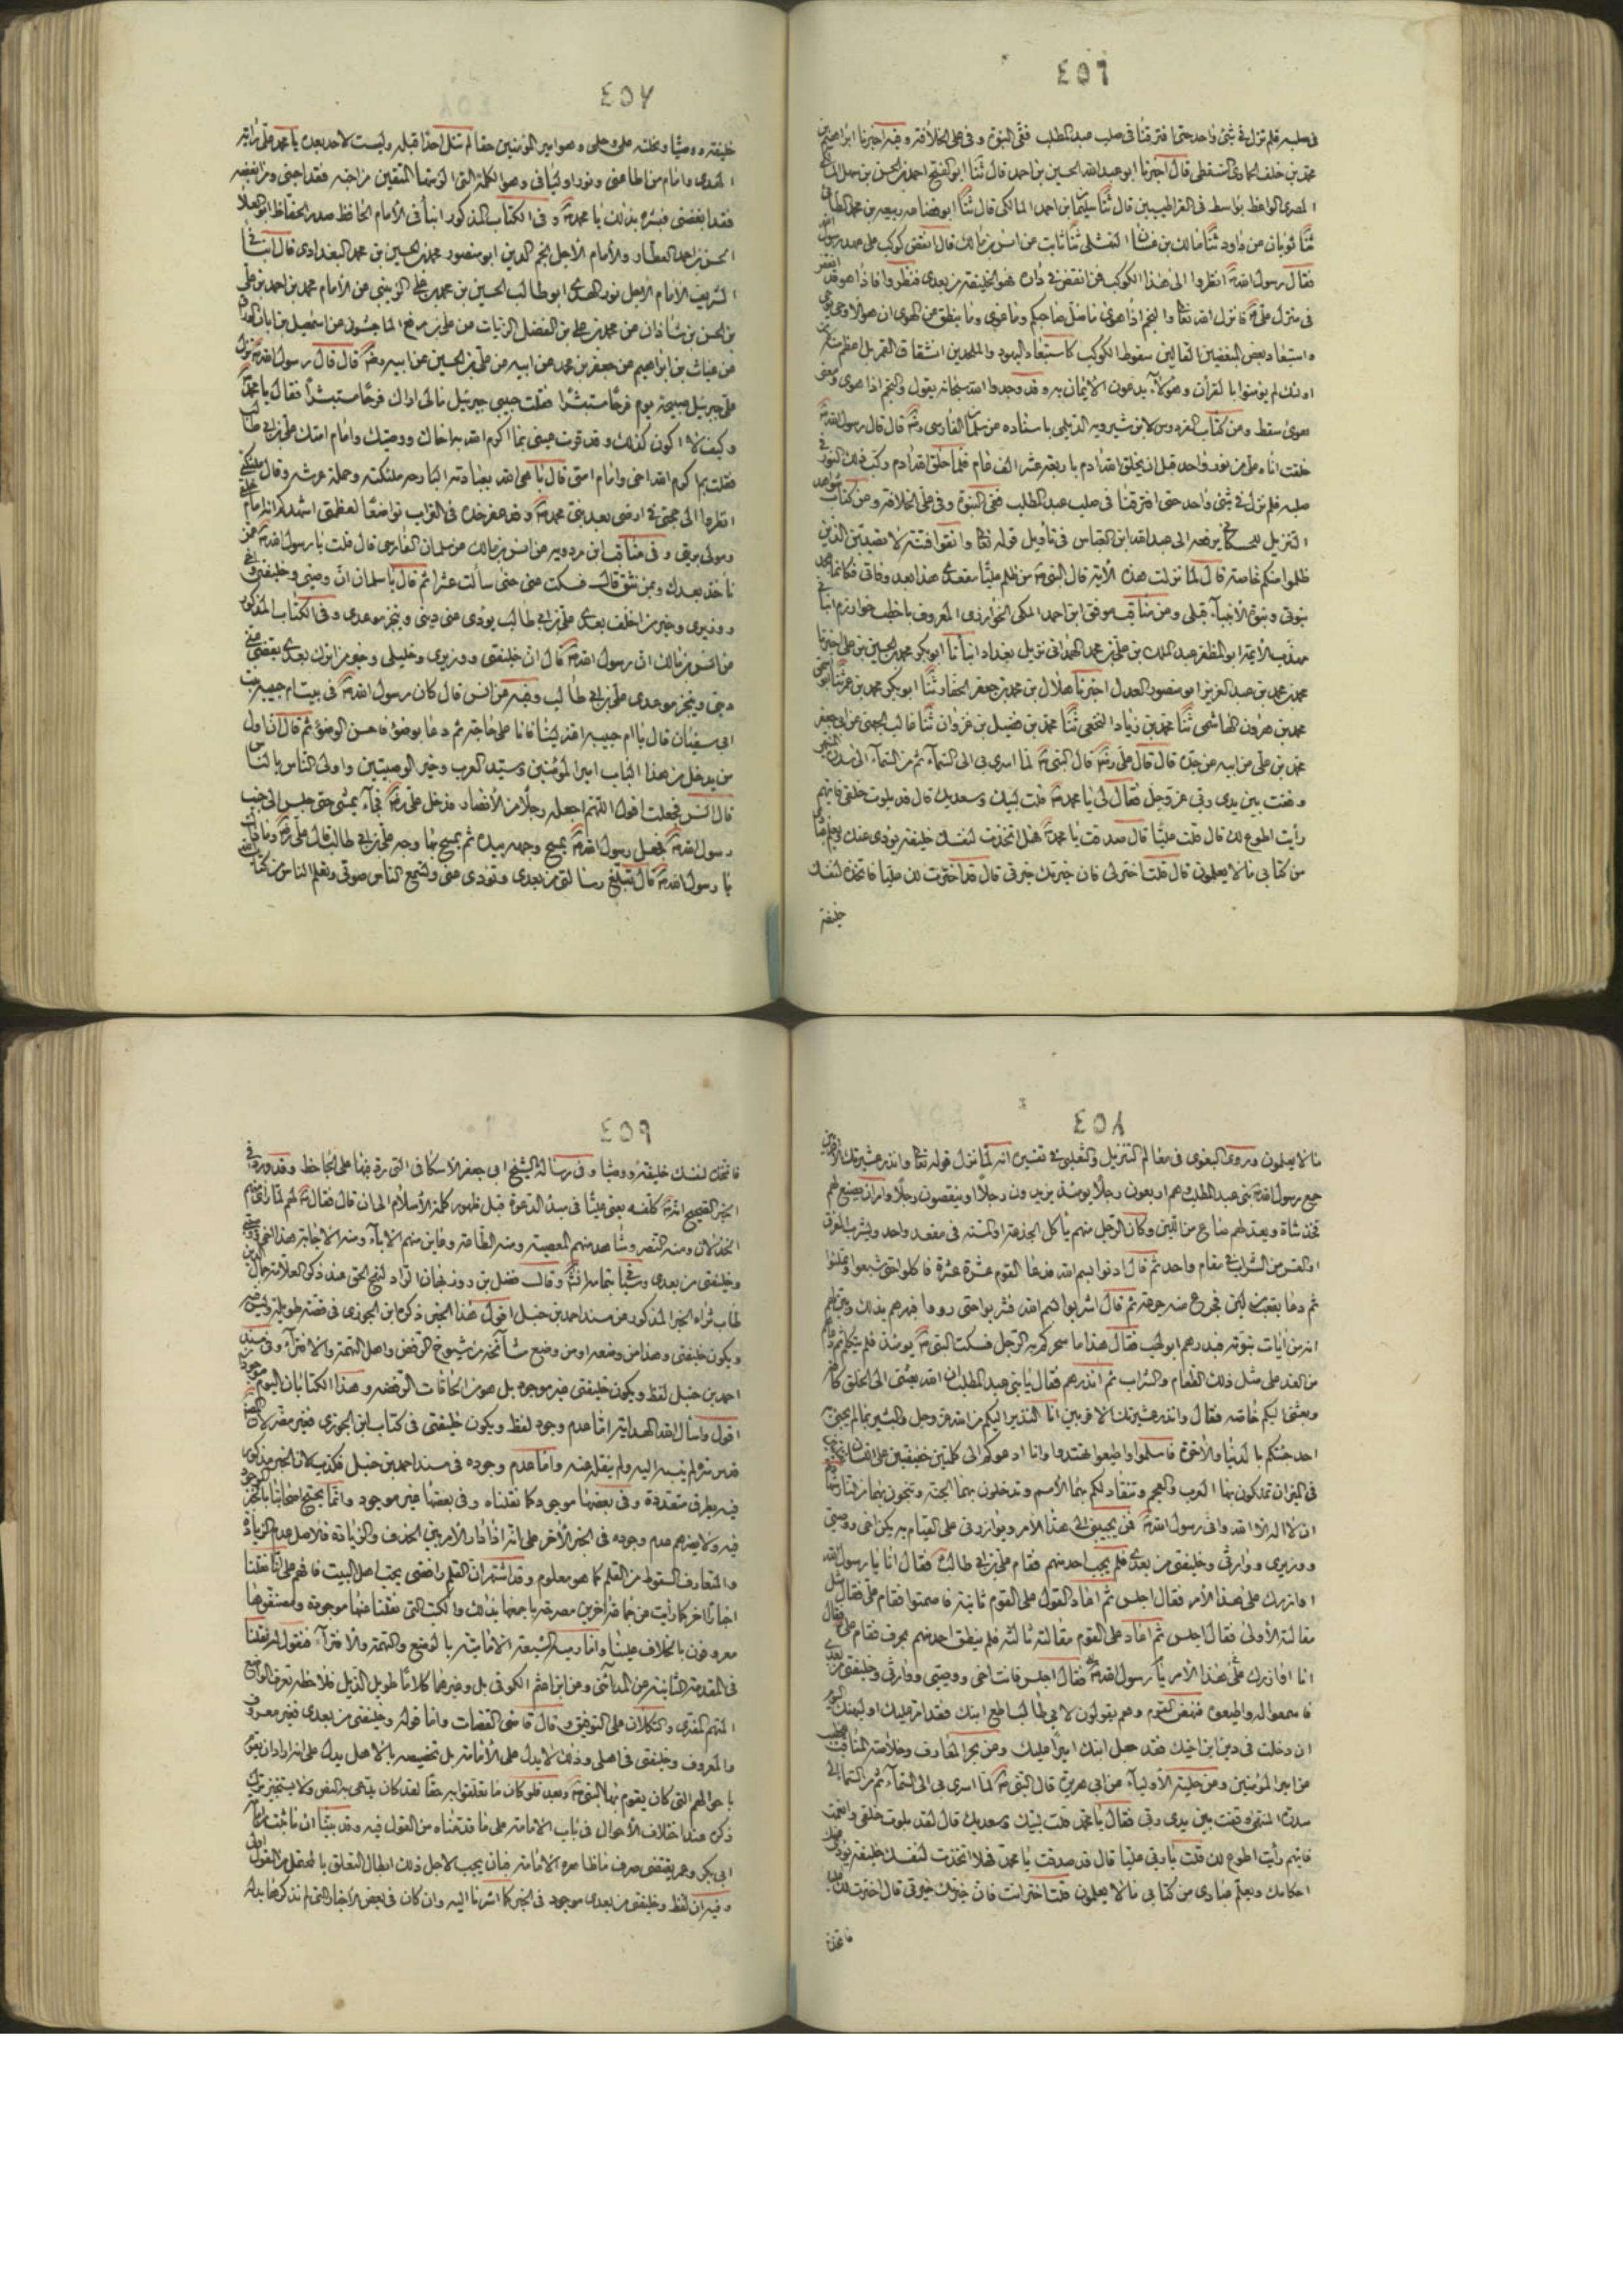 ٤٥٦
فى صلبه فلم نزل فى شئ واحد حتى افترقنا فى صلب عبد المطلب ففى النبوة وفى على الخلافة وفيه اخبرنا ابراهيم بن
محمد بن خلف الجمارى السقطى قال اخبرنا ابو عبد الله الحسين بن احمد قال ثنا ابو الفتح احمد بن الحسن بن سهل
المصرى الواعظ بواسط فى القراطيسيين قال ثنا سليمان بن احمد المالكى قال ثنا ابو قضاعه ربيعه بن محمد الطائى
ثنا ثوبان عن داود ثنا مالك بن غسان النهشلى ثنا ثابت عن انس بن مالك قال انقض كوكب على عهد رسول الله
فقال رسول الله انظروا الى هذا الكوكب فمن انقض فى داره فهو الخليفة من بعدى فنظروا فاذا هو قد انقض
فى منزل على فانزل الله تعالى والنجم اذا هوى ما ضل صاحبكم وما غوى وما ينطق عن الهوى ان هو الا وحى يوحى
واستبعاد بعض المبغضين القائلين سقوط الكوكب كاستبعاد اليهود والملحدين انشقاق القمر بل اعظم
اولئك لم يؤمنوا بالقرآن وهؤلاء يدعون الايمان به وقد وجدوا الله سبحانه يقول والنجم اذا هوى ومعنى
هوى سقط ومن كتاب الفردوس لابن شيرويه الديلمى باسناده عن سلمان الفارسى قال قال رسول الله
خلقت انا وعلى من نور واحد قبل ان يخلق الله ادم باربعة عشر الف عام فلما خلق الله ادم ركب ذلك النور فى
صلبه فلم نزل فى شئ واحد حتى افترقنا فى صلب عبد المطلب ففى النبوة وفى على الخلافة ومن كتاب شواهد
التنزيل للحسكانى يرفعه الى عبد الله ابن العباس فى تأويل قوله تعالى واتقوا فتنة لا تصيبن الذين
ظلموا منكم خاصة قال لما نزلت هذه الآية قال النبى من ظلم عليا مقعدى هذا بعد وفاتى فكانما جحد
بنوتى ونبوة الأنبياء قبلى ومن مناقب موفق ابن احمد المكى الخوارزمى المعروف باخطب خوارزم
مهذب الأئمة ابو المظفر عبد الملك بن على بن محمد الهمدانى نزيل بغداد انبأنا ابو بكر محمد بن الحسين بن على اخبرنا
محمد بن محمد بن عبد العزيز ابو منصور العدل اخبرنا هلال بن محمد بن جعفر الحفار ثنا ابو بكر محمد بن عمر
محمد بن هرون الهاشمى ثنا محمد بن زياد النخعى ثنا محمد بن فضيل بن غزوان ثنا غالب الجهنى عن ابى جعفر
محمد بن على عن ابيه عن جده قال قال على قال النبى لما اسرى بى الى السماء ثم من السماء الى سدرة المنتهى
وقفت بين يدى ربى عز وجل فقال لى يا محمد قلت لبيك وسعديك قال قد بلوت خلقى فايهم
رأيت اطوع لك قال قلت عليا قال صدقت يا محمد فهل اتخذت لنفسك خليفة يؤدى عنك ويعلم عبادى
من كتابى ما لا يعلمون قال قلت اختر لى فان خيرتك خيرتى قال قد اخترت لك عليا فاتخذه لنفسك
خليفة
٤٥٧
خليفة ووصيا ونحلته علمى وحلمى وهو امير المؤمنين حقا لم ينلها احد قبله وليست لاحد بعده يا محمد على راية
الهدى وامام من اطاعنى ونور اوليائى وهو الكلمة التى الزمتها المتقين من احبه فقد احبنى ومن ابغضه
فقد ابغضنى فبشره بذلك يا محمد وفى الكتاب المذكور انبأنى الأمام الحافظ صدر الحفاظ ابو العلا
الحسن بن احمد العطار والأمام الاجل نجم الدين ابو منصور محمد بن الحسين بن محمد البغدادى قال
الشريف الأمام الاجل نور الهدى ابو طالب الحسين بن محمد بن على الزينبى عن الأمام محمد بن احمد بن على
بن الحسن بن شاذان عن محمد بن على بن الفضل الزيات عن على بن بزيع الماجشون عن اسمعيل بن ابان
عن غياث بن ابراهيم عن جعفر بن محمد عن ابيه عن على بن الحسين عن ابيه قال قال رسول الله نزل
على جبرئيل صبيحة يوم فرحا مستبشرا فقلت حبيبى جبرئيل مالى اراك فرحا مستبشرا فقال يا محمد
وكيف لا اكون كذلك وقد قرت عينى بما اكرم الله به اخاك ووصيك وامام امتك على بن ابى طالب
فقلت بم اكرم الله اخى وامام امتى قال باهى الله بعبادته البارحه ملئكته وحملة عرشه وقال ملئكتى
انظروا الى حجتى فى ارضى بعد نبيى محمد وقد عفر خده فى التراب تواضعا لعظمتى اشهدكم انه امام
ومولى بريتى وفى مناقب ابن مردويه عن انس بن مالك عن سلمان الفارسى قال قلت يا رسول الله عن
نأخذ بعدك وبمن نثق قال فسكت عنى حتى سألت عشرا ثم قال يا سلمان ان وصيى وخليفتى واخى
ووزيرى وخير من اخلف بعدى على بن ابى طالب يؤدى عنى دينى وينجز موعدى وفى الكتاب المذكور
عن انس بن مالك ان رسول الله قال ان خليفتى ووزيرى وخليلى وخير من اترك بعدى يقضى
دينى وينجز موعدى على بن ابى طالب وفيه عن انس قال كان رسول الله فى بيت ام حبيبه بنت
ابى سفيان قال يا ام حبيبه اعتزلينا فانا على حاجة ثم دعا بوضوء فاحسن الوضوء ثم قال ان اول
من يدخل من هذا الباب امير المؤمنين وسيد العرب وخير الوصيين واولى الناس بالناس
قال انس فجعلت اقول اللهم اجعله رجلا من الأنصار فدخل على فجاء يمشى حتى جلس الى جنب
رسول الله فجعل رسول الله يمسح وجهه بيده ثم يمسح بها وجه على بن ابى طالب فقال على وما ذاك
يا رسول الله قال تبلغ رسالتى من بعدى وتؤدى عنى وتسمع الناس صوتى وتعلم الناس من كتاب
٤٥٨
ما لا يعلمون وروى البغوى فى معالم التنزيل والثعلبى فى تفسيره انه لما نزل قوله تعالى وانذر عشيرتك الأقربين
جمع رسول الله بنى عبد المطلب وهم اربعون رجلا يومئذ يزيدون رجلا او ينقصون رجلا وامر ان يصنع لهم
فخذ شاة ويعد لهم صاع من اللبن وكان الرجل منهم يأكل الجذعة او المسنة فى مقعد واحد ويشرب الفرق
او القربة من الشراب فى مقام واحد ثم قال ادنوا بسم الله فدنا القوم عشرة عشرة فاكلوا حتى شبعوا وتملئوا
ثم دعا بقعب لبن فجرع منه جرعة ثم قال اشربوا بسم الله فشربوا حتى رووا فبهرهم بذلك وبين لهم
انه من آيات نبوته فبدرهم ابو لهب فقال هذا ما سحركم به الرجل فسكت النبى يومئذ فلم يتكلم ثم دعاهم
من الغد على مثل ذلك الطعام والشراب ثم انذرهم فقال يا بنى عبد المطلب ان الله بعثنى الى الخلق كافة
وبعثنى اليكم خاصه فقال وانذر عشيرتك الاقربين انا النذير اليكم من الله عز وجل والبشير بما لم يجئ به
احد جئتكم بالدنيا والأخرة فاسلموا واطيعوا تهتدوا وانا ادعوكم الى كلمتين خفيفتين على اللسان
فى الميزان تملكون بهما العرب والعجم وتنقاد لكم بهما الأمم وتدخلون بهما الجنة وتنجون بهما من النار شهادة
ان لا اله الا الله وانى رسول الله فمن يجيبنى الى هذا الأمر ويوازرنى على القيام به يكن اخى ووصيى
ووزيرى ووارثى وخليفتى من بعدى فلم يجب احد منهم فقام على بن ابى طالب فقال انا يا رسول الله
اوازرك على هذا الأمر فقال اجلس ثم اعاد القول على القوم ثانية فاصمتوا فقام على فقال مثل
مقالته الأولى فقال اجلس ثم اعاد على القوم مقالته ثالثة فلم ينطق احد منهم بحرف فقام على فقال
انا اوازرك على هذا الأمر يا رسول الله فقال اجلس فانت اخى ووصيى ووارثى وخليفتى من بعدى
فاسمعوا له واطيعوه فنهض القوم وهم يقولون لابى طالب اطع ابنك فقد امر عليك او ليهنك اليوم
ان دخلت فى دين ابن اخيك فقد جعل ابنك اميرا عليك ومن بحر المعارف وخلاصة المناقب
عن امير المؤمنين ومن حلية الأولياء عن ابى هريرة قال النبى لما اسرى بى الى السماء ثم من السماء الى
سدرة المنتهى وقفت بين يدى ربى فقال يا محمد قلت لبيك وسعديك قال لقد بلوت خلقى
فايهم رأيت اطوع لك قلت يا ربى عليا قال قد صدقت يا محمد فهلا اتخذت لنفسك خليفة يؤدى عنك
احكامك ويعلم عبادى من كتابى ما لا يعلمون قلت اختر انت فان خيرتك خيرتى قال اخترت لك عليا
فاتخذه
٤٥٩
فاتخذه لنفسك خليفة ووصيا وفى رسالة الشيخ ابى جعفر الأسكافى التى رد فيها على الجاحظ وقد ورد فى
الخبر الصحيح انه كلفه يعنى عليا فى مبدأ الدعوة قبل ظهور كلمة الأسلام الى ان قال فقال لهم لما رأى منهم
الخذلان ومنه النصر وشاهد منهم المعصية ومنه الطاعة وعاين منهم الاباء ومنه الاجابة هذا اخى ووصيى
وخليفتى من بعدى وقال فضل بن روزبهان الراد لنهج الحق عند ذكر العلامة جمال الدين
طاب ثراه الخبر المذكور عن مسند احمد بن حنبل اقول هذا الخبر ذكره ابن الجوزى فى قصة طويلة وليس فيه
ويكون خليفتى وهذا من وضعه او من وضع مشايخه من شيوخ الرفض واهل التهمة والافتراء وفى مسند
احمد بن حنبل لفظ ويكون خليفتى غير موجوده بل هو من الحاقات الرفضه وهذا الكتابان اليوم موجودان
اقول واسأل الله الهداية اما عدم وجود لفظ ويكون خليفتى فى كتاب ابن الجوزى فغير مضر لان
قدس سره لم ينسبه اليه ولم ينقله عنه واما عدم وجوده فى مسند احمد بن حنبل فكذب لان الخبر مذكور
فيه بطرق متعددة وفى بعضها موجود كما نقلناه وفى بعضها غير موجود وانما يحتج اصحابنا بالخبر الموجود
فيه ولا يضرهم عدم وجوده فى الخبر الأخر على انه اذا دار الامر بين الحذف والزيادة فالاصل عدم الزيادة
والمتعارف السقوط من القلم كما هو معلوم وقد اشتهر ان القلم رافضى يحب اهل البيت فافهم على انا نقلنا
اخبارا اخر كما رأيت من جماعة آخرين مصرحة باجمعها بذلك والكتب التى نقلنا عنها موجودة ومصنفوها
معروفون بالخلاف علينا واما رميه الشيعة الامامية بالوضع والتهمة والافتراء فنقول له نقلنا
فى المقدمة الثانية عن المدائنى وعن ابن اعثم الكوفى بل وغيرهما كلاما طويل الذيل فلاحظه تعرف الواضع
المتهم المفترى والتكلان على التوفيق وقال قاضى القضات واما قوله وخليفتى من بعدى فغير معروف
والمعروف وخليفتى فى اهلى وذلك لا يدل على الأمامة بل تخصيصه بالاهل يدل على انه اراد ان يقوم
باحوالهم التى كان يقوم بها النبى وبعد فلو كان ما تعلقوا به حقا لقد كان يدعى به النص ولا يستجيز ترك
ذكره عند اختلاف الأحوال فى باب الامامة على ما قدمناه من القول فيه وقد بينا ان ما ثبت من امامة
ابى بكر وعمر يقتضى صرف ما ظاهره الامامة فبان يجب لاجل ذلك ابطال التعلق بالمحتمل من القول اولى
وفيه ان لفظ وخليفتى من بعدى موجود فى الخبر كما اشرنا اليه وان كان فى بعض الأخبار التى لم نذكرها بدله